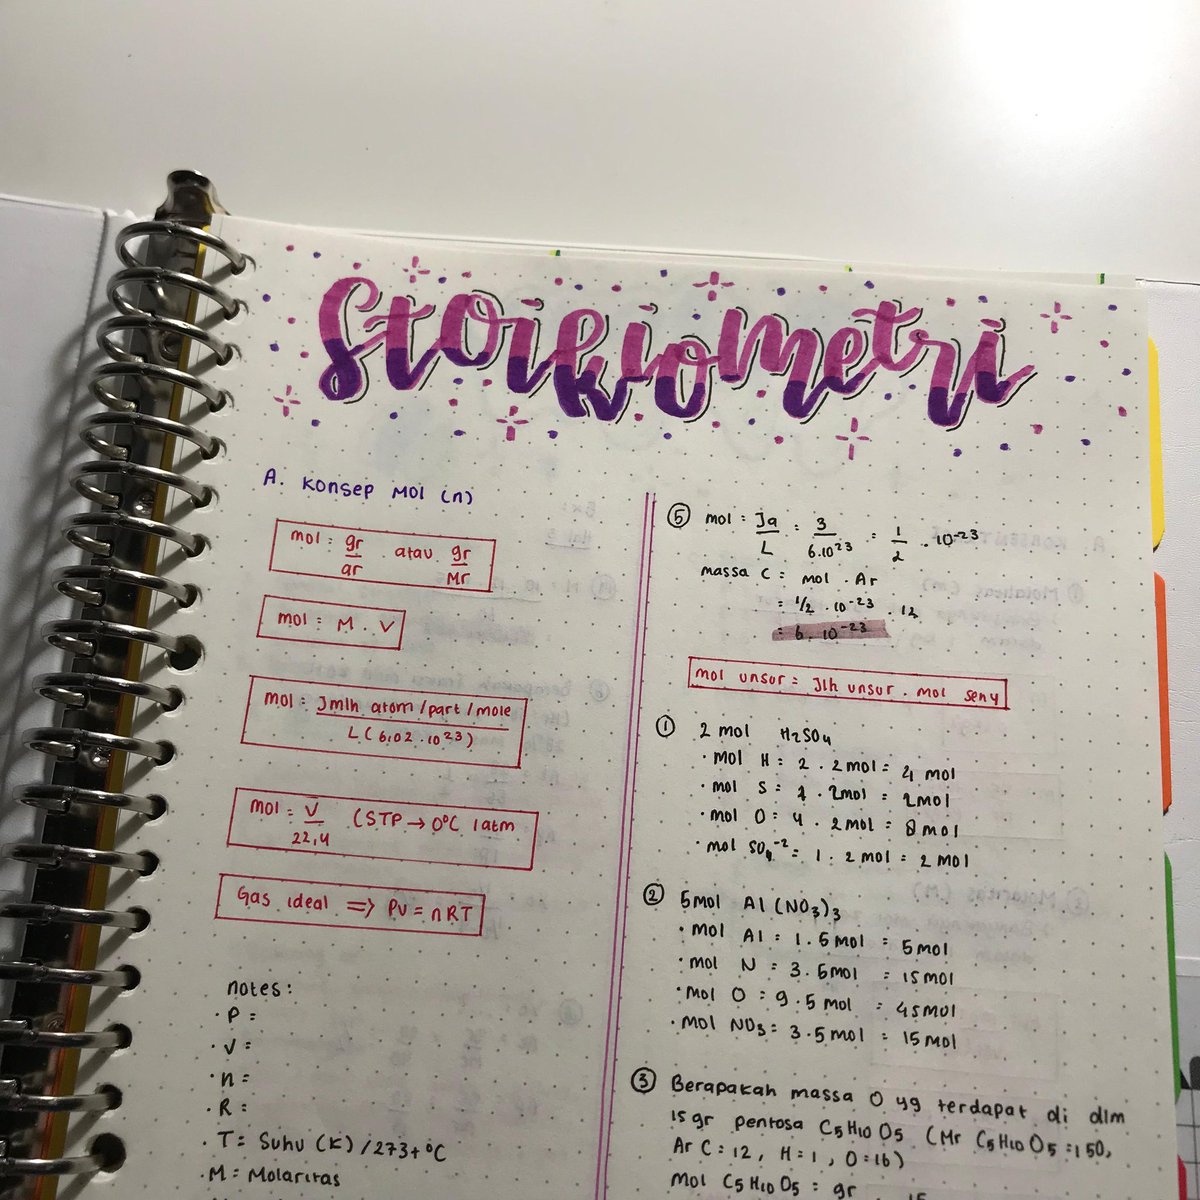 Stoikiometri
A. Konsep Mol (n)
mol = gr/ar atau gr/Mr
mol = M . V
mol = Jmlh atom/part/mole
L (6,02 . 10²³)
mol = V/22,4 (STP → 0°C 1atm
Gas ideal => PV = nRT
notes :
• P =
• V =
• n =
• R =
• T = Suhu (K) /273+°C
• M = Molaritas
⑤ mol = Ja/L = 3/6.10²³ = 1/2 . 10⁻²³
massa C = mol . Ar
= 1/2 . 10⁻²³ . 12
= 6 . 10⁻²³
mol unsur = Jlh unsur . mol seny
① 2 mol H₂SO₄
• mol H = 2 . 2 mol = 4 mol
• mol S = 1 . 2mol = 2mol
• mol O = 4 . 2 mol = 8 mol
• mol SO₄⁻² = 1 . 2 mol = 2 mol
② 5mol Al (NO₃)₃
• mol Al = 1 . 5 mol = 5 mol
• mol N = 3 . 5mol = 15 mol
• mol O = 9 . 5 mol = 45 mol
• mol NO₃ = 3 . 5 mol = 15 mol
③ Berapakah massa O yg terdapat di dlm
15 gr pentosa C₅H₁₀O₅ (Mr C₅H₁₀O₅ = 150,
Ar C = 12, H = 1, O = 16)
mol C₅H₁₀O₅ = gr 15